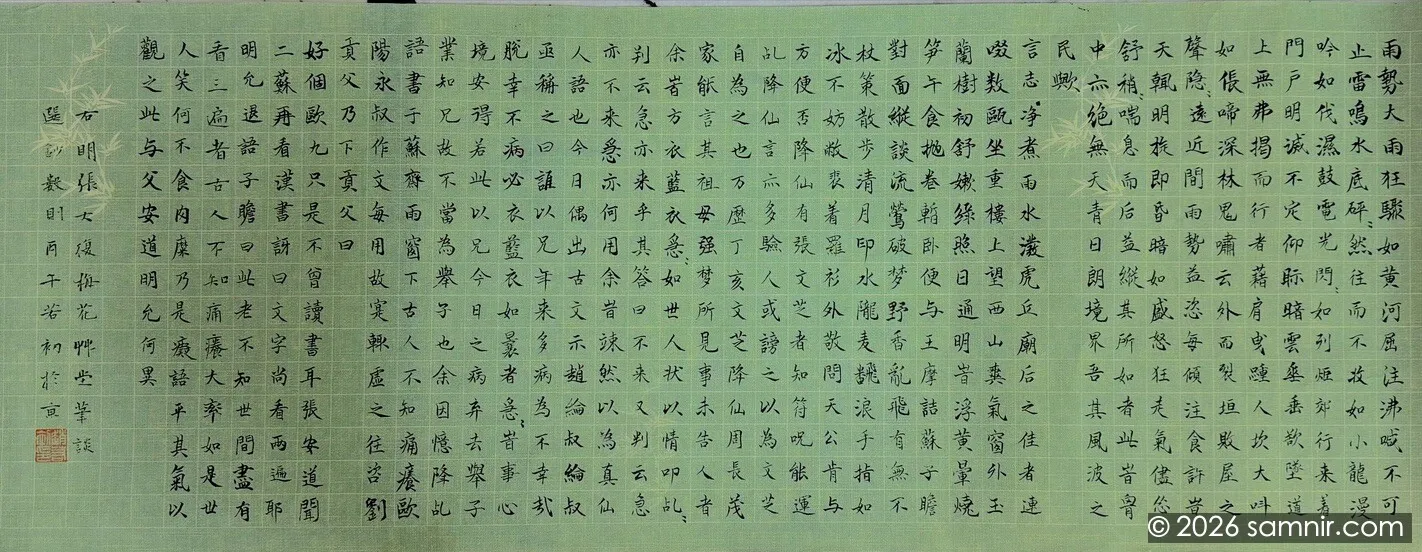 雨勢大雨狂驟如黃河屈注沸喊不可
止雷鳴水底砰〻然往而不收如小龍漫
吟如伐濕鼓電光閃〻如列炬郊行来着
門戶明滅不定仰眎暗雲垂垂欲墜道
上無弗揭而行者藉肩曳踵人坎大呌
如倀啼深林鬼嘯云外而裂垣敗屋之
聲隐〻遠近間雨勢益恣每傾注食許豈
天輒明旋即昏暗如盛怒狂走氣儘忽
舒稍〻喘息而后益縱其所如者此昔曾
中亦絕無天青日朗境界吾其風波之
民歟
言志净煮雨水瀎虎丘廟后之佳者連
啜数甌坐重樓上望西山爽氣窗外玉
蘭樹初舒嫩綠照日通明昔浮黃暈燒
笋午食抛卷暫卧便与王摩詰蘇子瞻
對面縱談流鶯破梦野香亂飛有無不
杖策散步清月印水隴麦翻浪手指如
冰不妨敝裘着羅衫外敬問天公肯与
方便否降仙有張文芝者知符呪能運
乩降仙言亦多驗人或謗之以為文芝
自為之也万歷丁亥文芝降仙周長茂
家能言其祖母强梦所見事未告人者
余昔方衣藍衣忽〻如世人状以情叩乩〻
判云急亦来乎其答曰不来又判云急
亦不来忽亦何用余昔竦然以為真仙
人語也今日偶出古文示趙綸叔綸叔
巫稱之曰誰以兄年来多病為不幸哉
脫幸不病必衣藍衣如曩者忽〻昔事心
境安得若此以兄今日之病弃去舉子
業知兄故不當為舉子也余因憶降乩
語書于蘇齋雨窗下古人不知痛癢歐
陽永叔作文每用故寔輒虛之往咨劉
貢父乃下貢父曰
好個歐九只是不曾讀書耳張安道聞
二蘇再看漢書訝曰文字尚看兩遍耶
明允退語子瞻曰此老不知世間盡有
看三遍者古人不知痛癢大率如是世
人笑何不食肉糜乃是癡語平其氣以
觀之此与父安道明允何異
右明張大復梅花艸堂筆談
選鈔數則丙午若初於京
© 2026 samnir.com